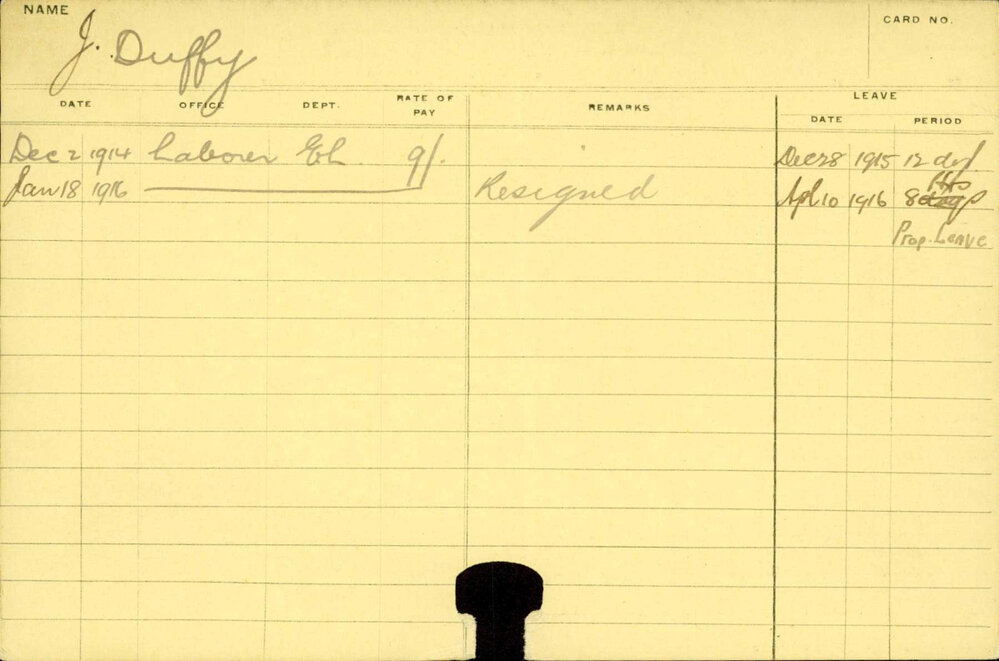 NAME
CARD NO.
J. Duffy
DATE OFFICE DEPT. RATE OF PAY REMARKS LEAVE
DATE PERIOD
Dec 2 1914 Laborer 9/. Dec 28 1915 12 days
Jan 18 1916 Resigned Apl 10 1916 8 days Hrs
Prop. Leave